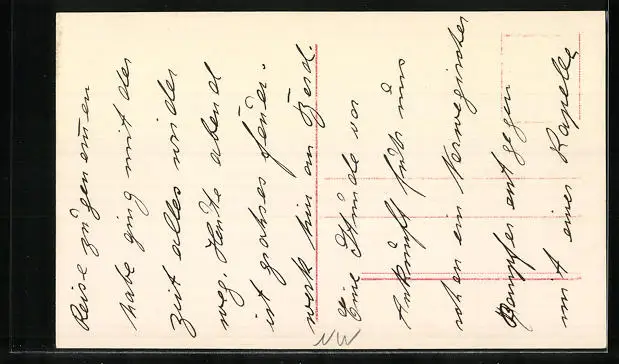 Reise zugenomen
habe ging mit der
Zeit alles wieder
weg. Heute abend
ist großes Feuer-
werk hier an Bord.
Eine Stunde vor
Ankunft fuhr uns
schon ein Norwegischer
Dampfer entgegen
mit einer Kapelle
NW